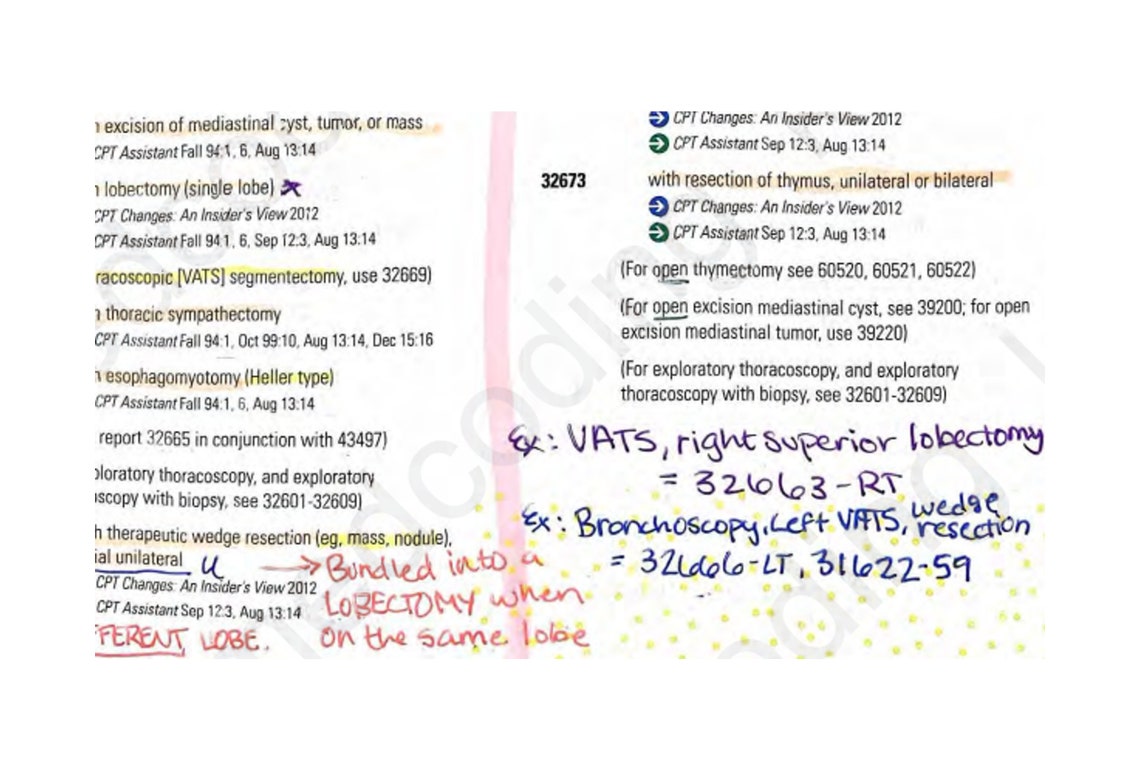 excision of mediastinal cyst, tumor, or mass
CPT Assistant Fall 94:1, 6, Aug 13:14
lobectomy (single lobe)
CPT Changes: An Insider's View 2012
CPT Assistant Fall 94:1, 6, Sep 12:3, Aug 13:14
racoscopic [VATS] segmentectomy, use 32669)
thoracic sympathectomy
CPT Assistant Fall 94:1, Oct 99:10, Aug 13:14, Dec 15:16
esophagomyotomy (Heller type)
CPT Assistant Fall 94:1, 6, Aug 13:14
report 32665 in conjunction with 43497)
ploratory thoracoscopy, and exploratory
scopy with biopsy, see 32601-32609)
h therapeutic wedge resection (eg, mass, nodule),
ial unilateral U
CPT Changes: An Insider's View 2012
CPT Assistant Sep 12:3, Aug 13:14
FFERENT LOBE.
→ Bundled into a
LOBECTOMY when
on the same lobe
CPT Changes: An Insider's View 2012
CPT Assistant Sep 12:3, Aug 13:14
32673 with resection of thymus, unilateral or bilateral
CPT Changes: An Insider's View 2012
CPT Assistant Sep 12:3, Aug 13:14
(For open thymectomy see 60520, 60521, 60522)
(For open excision mediastinal cyst, see 39200; for open
excision mediastinal tumor, use 39220)
(For exploratory thoracoscopy, and exploratory
thoracoscopy with biopsy, see 32601-32609)
Ex: VATS, right superior lobectomy
= 32663-RT
Ex: Bronchoscopy, Left VATS, wedge
resection
= 32666-LT, 31622-59